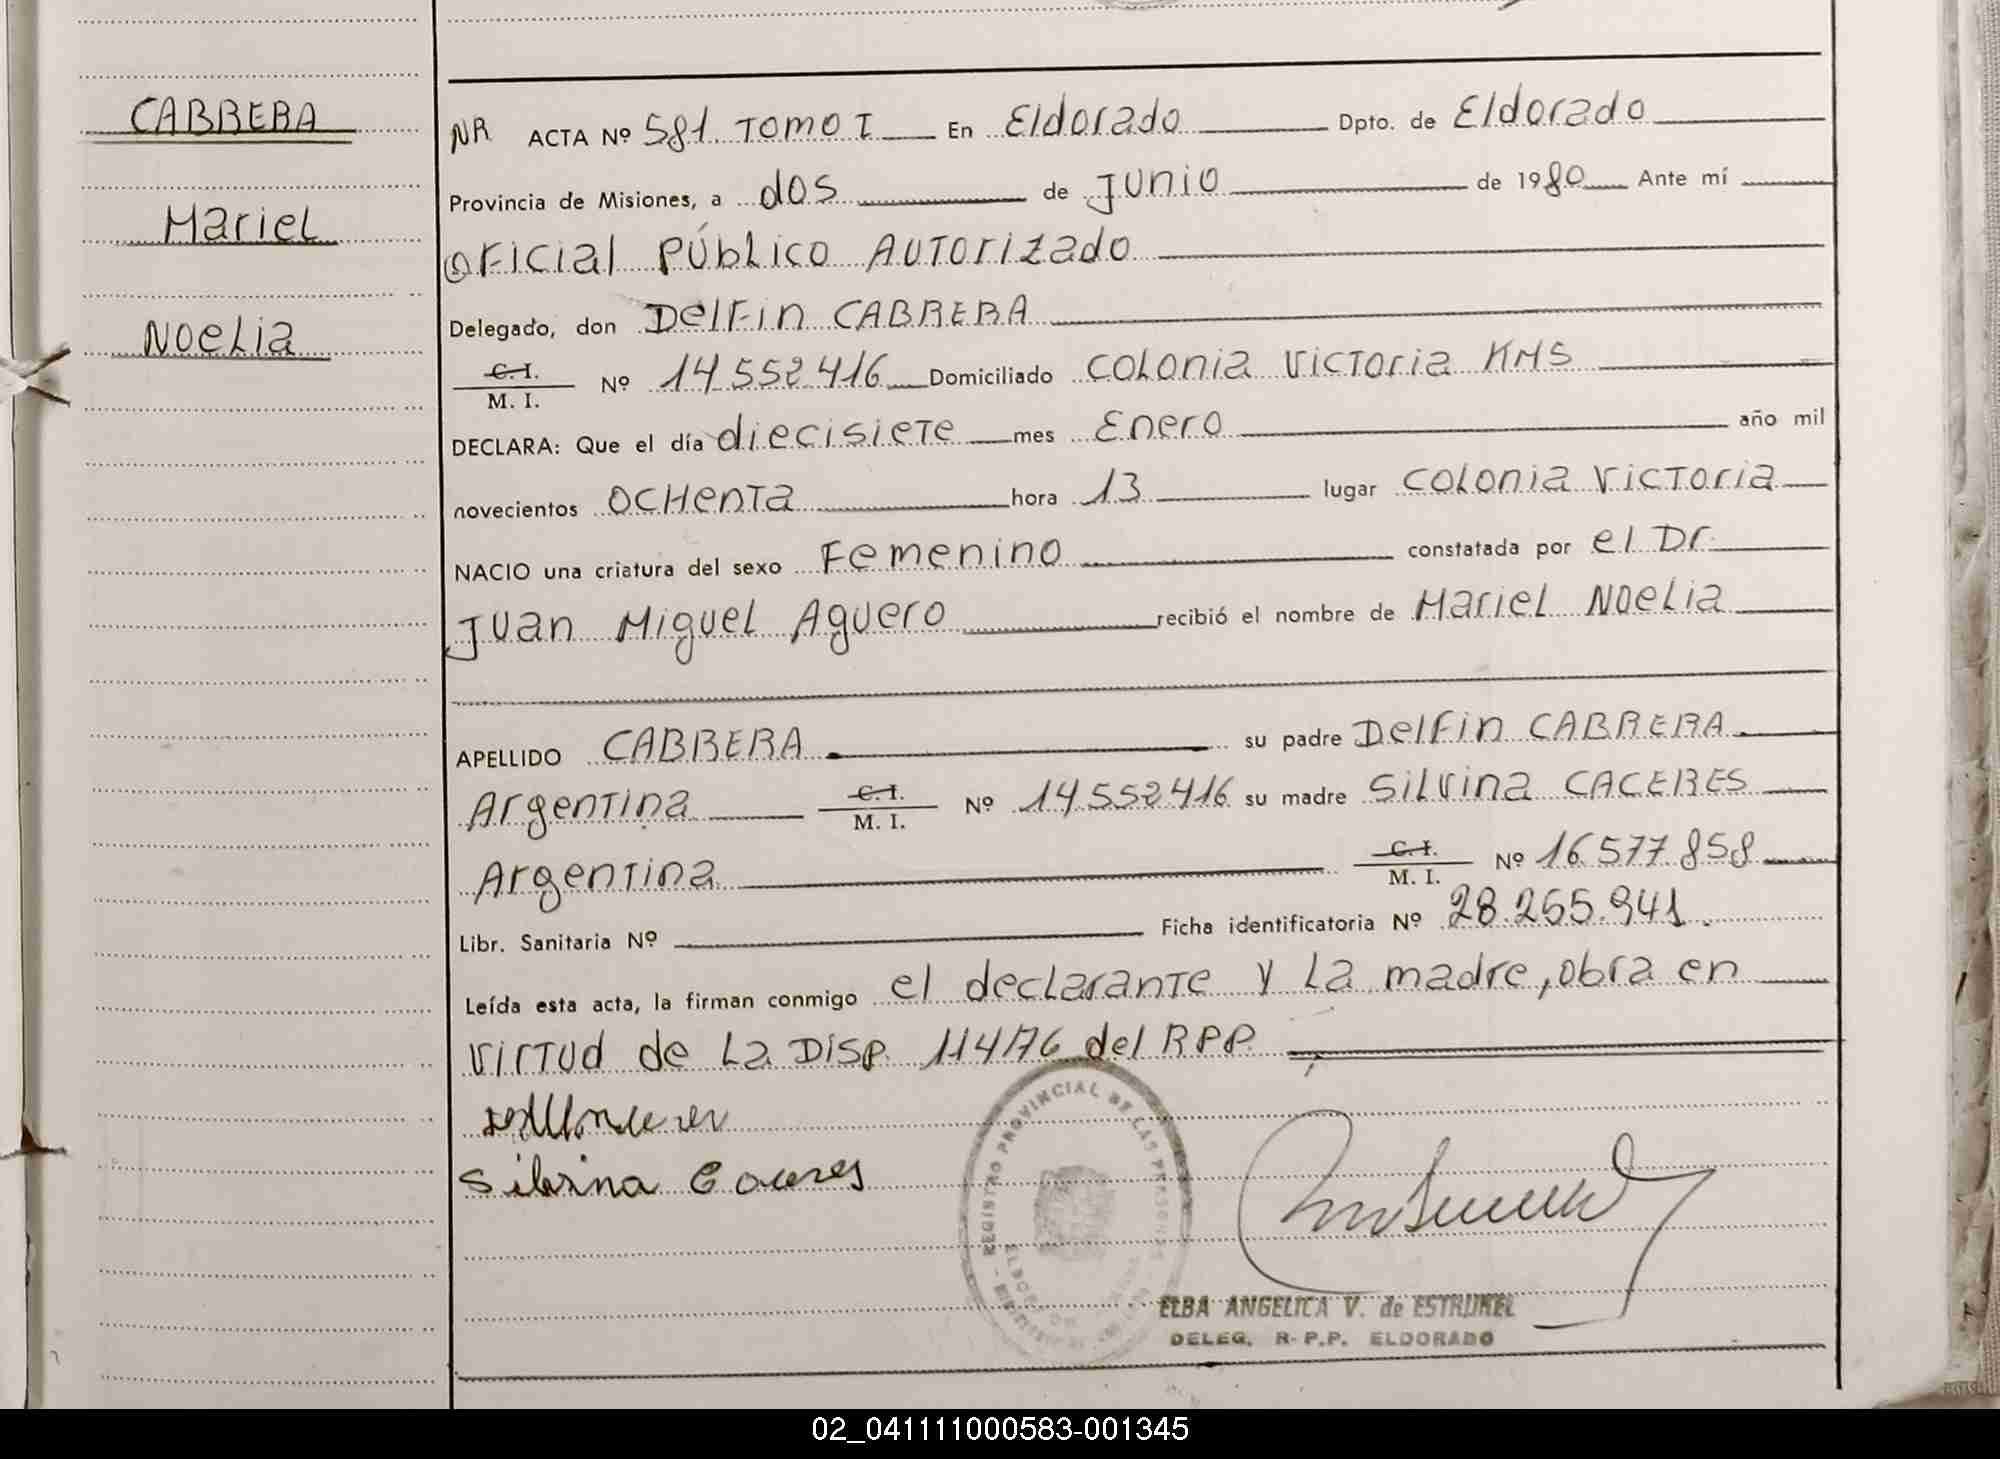 CABRERA
Mariel
Noelia
NR ACTA Nº 581 TOMO I En Eldorado Dpto. de Eldorado
Provincia de Misiones, a dos de Junio de 1980 Ante mí
Oficial Público Autorizado
Delegado, don Delfin CABRERA
C. I. M. I. Nº 14.552.416 Domiciliado Colonia Victoria KM5
DECLARA: Que el día diecisiete mes Enero año mil
novecientos ochenta hora 13 lugar Colonia Victoria
NACIO una criatura del sexo Femenino constatada por el Dr.
Juan Miguel Aguero recibió el nombre de Mariel Noelia
APELLIDO CABRERA su padre Delfin CABRERA
Argentina C. I. M. I. Nº 14.552.416 su madre Silvina CACERES
Argentina C. I. M. I. Nº 16.577.858
Libr. Sanitaria Nº Ficha identificatoria Nº 28.265.941.
Leída esta acta, la firman conmigo el declarante y la madre, obra en
virtud de la Disp. 114/76 del RPP.
Silvina Caceres
REGISTRO PROVINCIAL DE LAS PERSONAS
ELDORADO
ELBA ANGELICA V. de ESTRUKEL
DELEG. R.P.P. ELDORADO
02_041111000583-001345